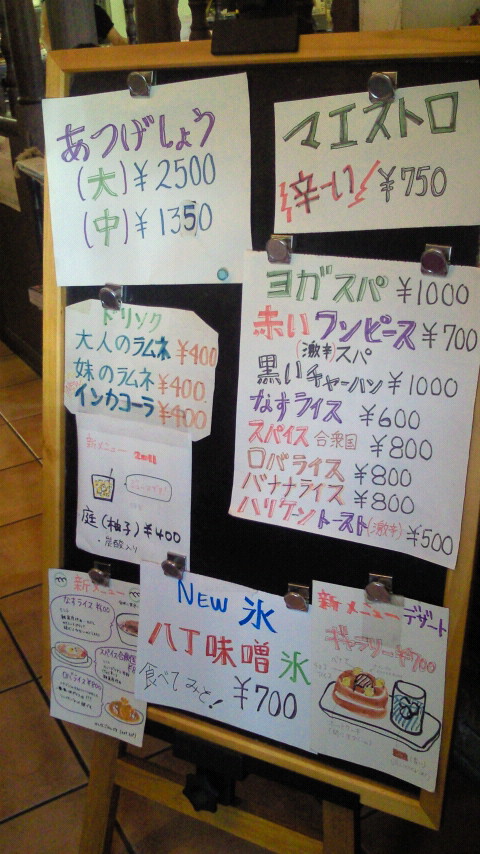 あつげしょう
(大)¥2500
(中)¥1350
マエストロ
辛ーい! ¥750
ドリンク
大人のラムネ ¥400
妹のラムネ ¥400.
インカコーラ ¥400
ヨガスパ ¥1000
赤いワンピース ¥700
(激辛)スパ
黒いチャーハン ¥1000
なすライス ¥600
スパイス合衆国 ¥800
ロバライス ¥800
バナナライス ¥800
ハリケントースト(激辛) ¥500
新メニュー
庭(柚子)¥400
・炭酸入り
新メニュー
なすライス ¥600
スパイス合衆国
ロバライス ¥800
NEW 氷
八丁味噌氷
食べてみと! ¥700
新メニュー デザート
ギャラリー ¥700